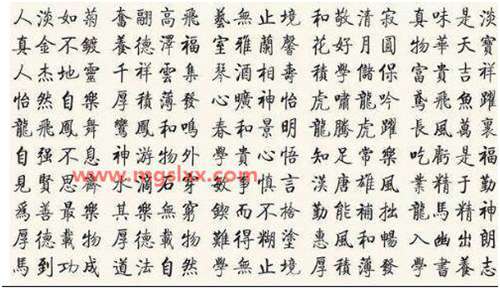 人淡如菊 奮翮高飛 藝無止境 和敬清寂 真味是淡
真金不鍍 養德澤福 室雅蘭馨 花好月圓 物華天寶
人杰地靈 千祥雲集 琴酒相壽 學儲 富貴吉祥
怡然自樂 厚積薄發 心曠神怡 虎嘯龍吟 鳶飛魚躍
龍飛鳳舞 鸞鳳和鳴 春和景明 龍騰虎躍 長風萬裏
自强不息 神游物外 學貴心悟 知足常樂 吃虧是福
www.mgslxx.com
見賢思齊 水滴石穿 敏事慎言 漢唐雄風 業精于勤
爲善最樂 其樂無窮 鍥而不捨 勤能補拙 龍馬精神
厚德載物 厚德載物 難得糊塗 惠風和暢 入幽出朗
馬到功成 道法自然 學無止境 厚積薄發 學書養志